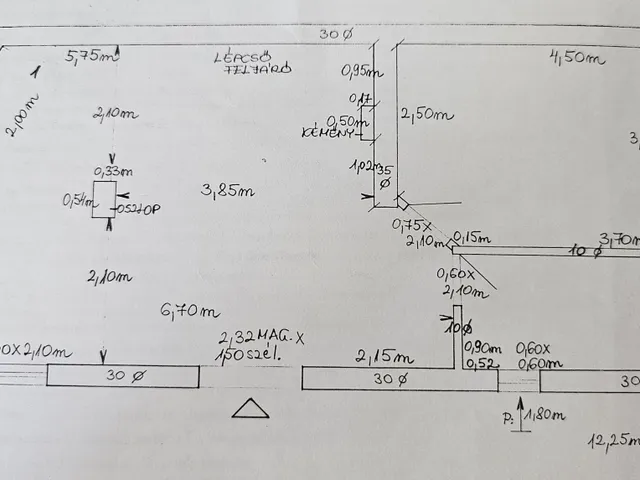 30 ∅
5,75m
LÉPCSŐ
FELJÁRÓ
4,50m
2,00m
0,95m
2,10m
0,17
0,50m
KÉMÉNY
2,50m
3,
1,02m
35
∅
0,33m
0,54m
OSZLOP
3,85m
0,75x
2,10m
0,15m
3,70m
10 ∅
2,10m
0,60x
2,10m
6,70m
10 ∅
2,32 MAG. X
1,50 szél.
0x2,10m
2,15m
0,90m
0,52
0,60x
0,60m
30 ∅
30 ∅
30
P:
1,80m
12,25m